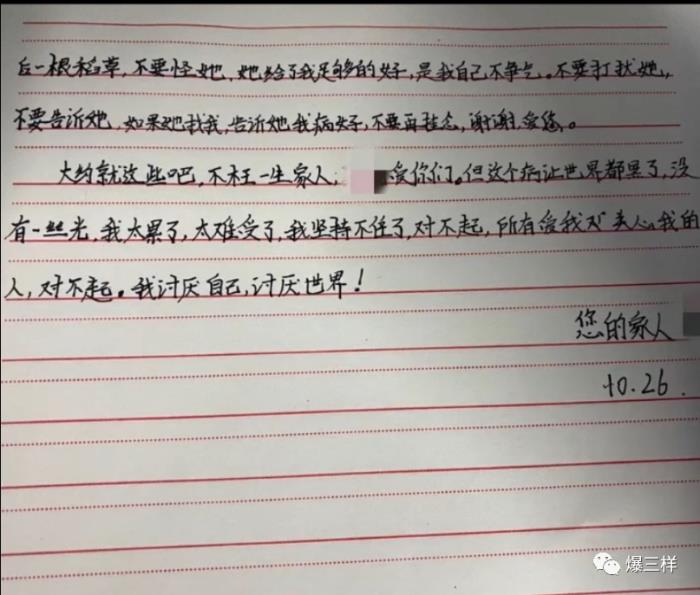 后一根稻草，不要怪她，她给了我足够的好，是我自己不争气，不要打扰她，
不要告诉她，如果她找我，告诉她我病好，不要再挂念，谢谢，爱您。
大约就这些吧，不枉一生家人，爱你们。但这个病让世界都黑了，没
有一丝光，我太累了，太难受了，我坚持不住了，对不起，所有爱我关心我的
人，对不起。我讨厌自己，讨厌世界！
您的家人
10.26.
爆三样